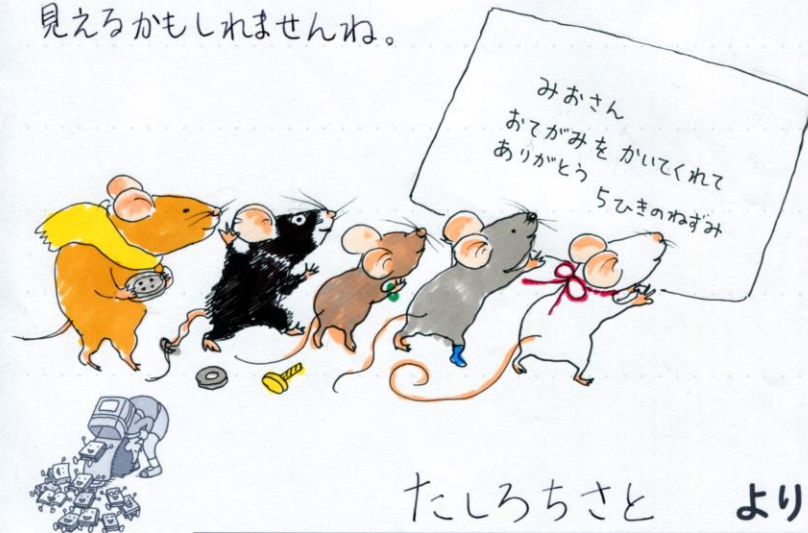 見えるかもしれませんね。
みおさん
おてがみを かいてくれて
ありがとう
5ひきのねずみ
たしろちさと より